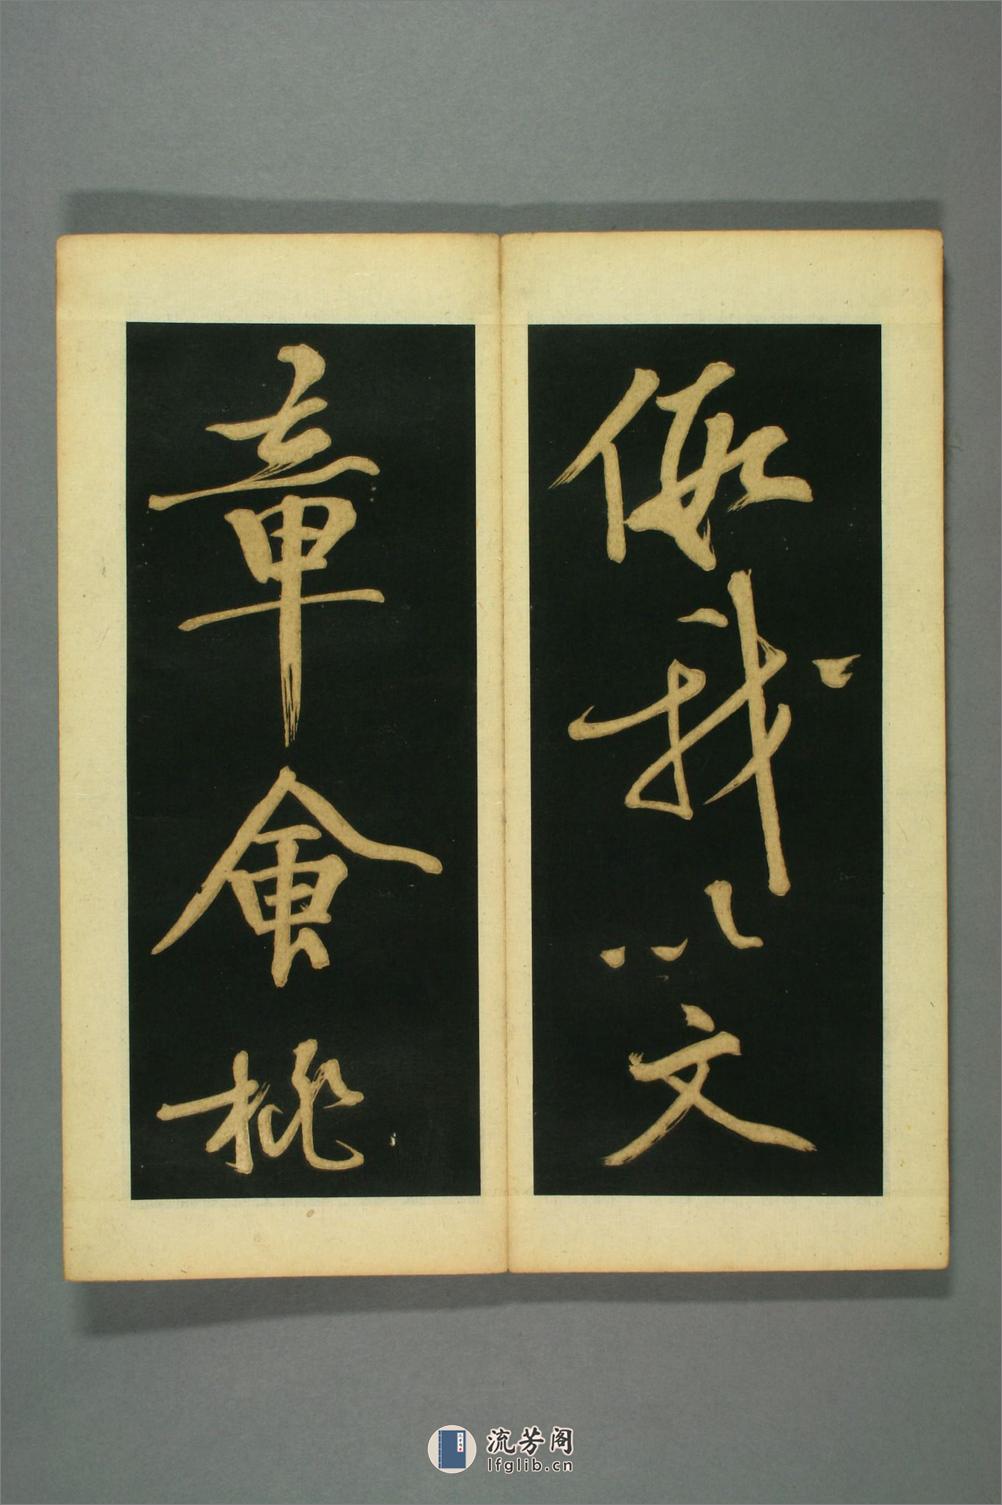 假我以文
章會桃
流芳阁
lfglib.cn